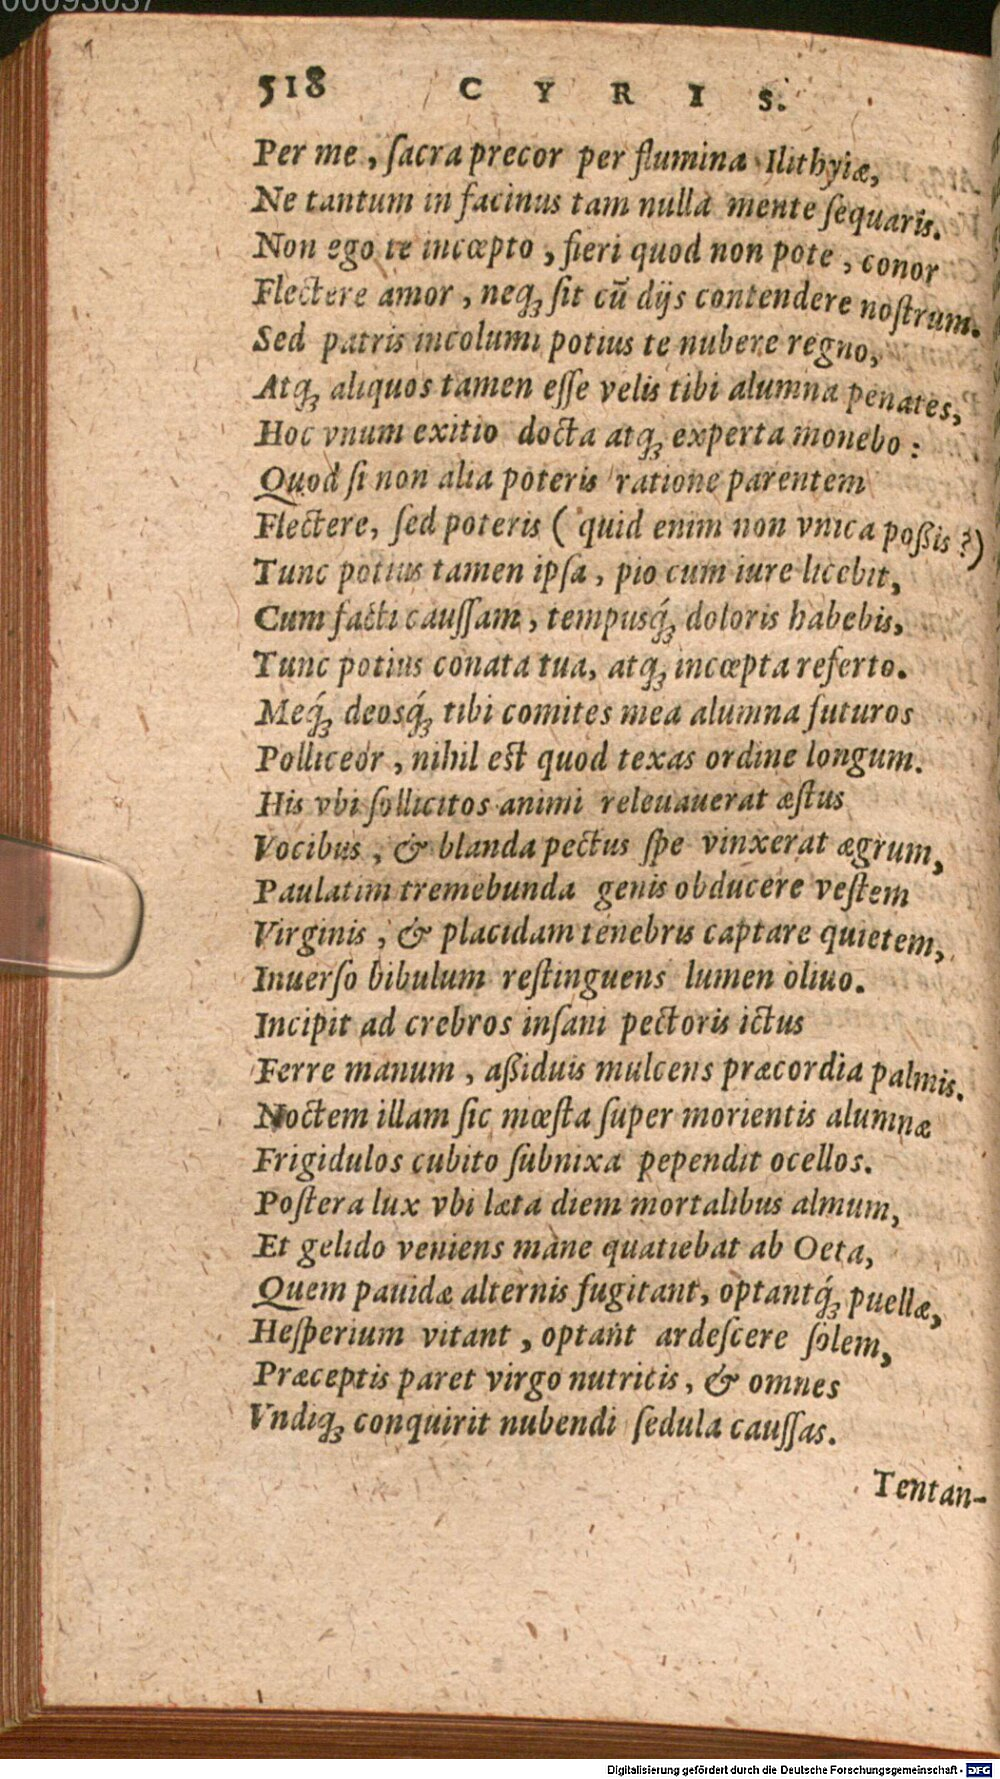 00093037
518 CYRIS.
Per me, ſacra precor per flumina Ilithyiæ,
Ne tantum in facinus tam nulla mente ſequaris.
Non ego te incœpto, fieri quod non pote, conor
Flectere amor, neqꝫ ſit cū dijs contendere noſtrum.
Sed patris incolumi potius te nubere regno,
Atqꝫ aliquos tamen eſſe velis tibi alumna penates,
Hoc vnum exitio docta atqꝫ experta monebo:
Quod ſi non alia poteris ratione parentem
Flectere, ſed poteris (quid enim non vnica poßis?)
Tunc potius tamen ipſa, pio cum iure licebit,
Cum facti cauſſam, tempusq́ꝫ doloris habebis,
Tunc potius conata tua, atqꝫ incœpta referto.
Meq́ꝫ deosq́ꝫ tibi comites mea alumna futuros
Polliceor, nihil est quod texas ordine longum.
His vbi ſollicitos animi releuauerat æſtus
Vocibus, & blanda pectus ſpe vinxerat ægrum,
Paulatim tremebunda genis obducere veſtem
Virginis, & placidam tenebris captare quietem,
Inuerſo bibulum reſtinguens lumen oliuo.
Incipit ad crebros inſani pectoris ictus
Ferre manum, aßiduis mulcens præcordia palmis.
Noctem illam ſic mœſta ſuper morientis alumnæ
Frigidulos cubito ſubnixa pependit ocellos.
Poſtera lux vbi læta diem mortalibus almum,
Et gelido veniens mane quatiebat ab Oeta,
Quem pauidæ alternis fugitant, optantq́ꝫ puellæ,
Heſperium vitant, optant ardeſcere ſolem,
Præceptis paret virgo nutricis, & omnes
Vndiqꝫ conquirit nubendi ſedula cauſſas.
Tentan-
Digitalisierung gefördert durch die Deutsche Forschungsgemeinschaft - DFG